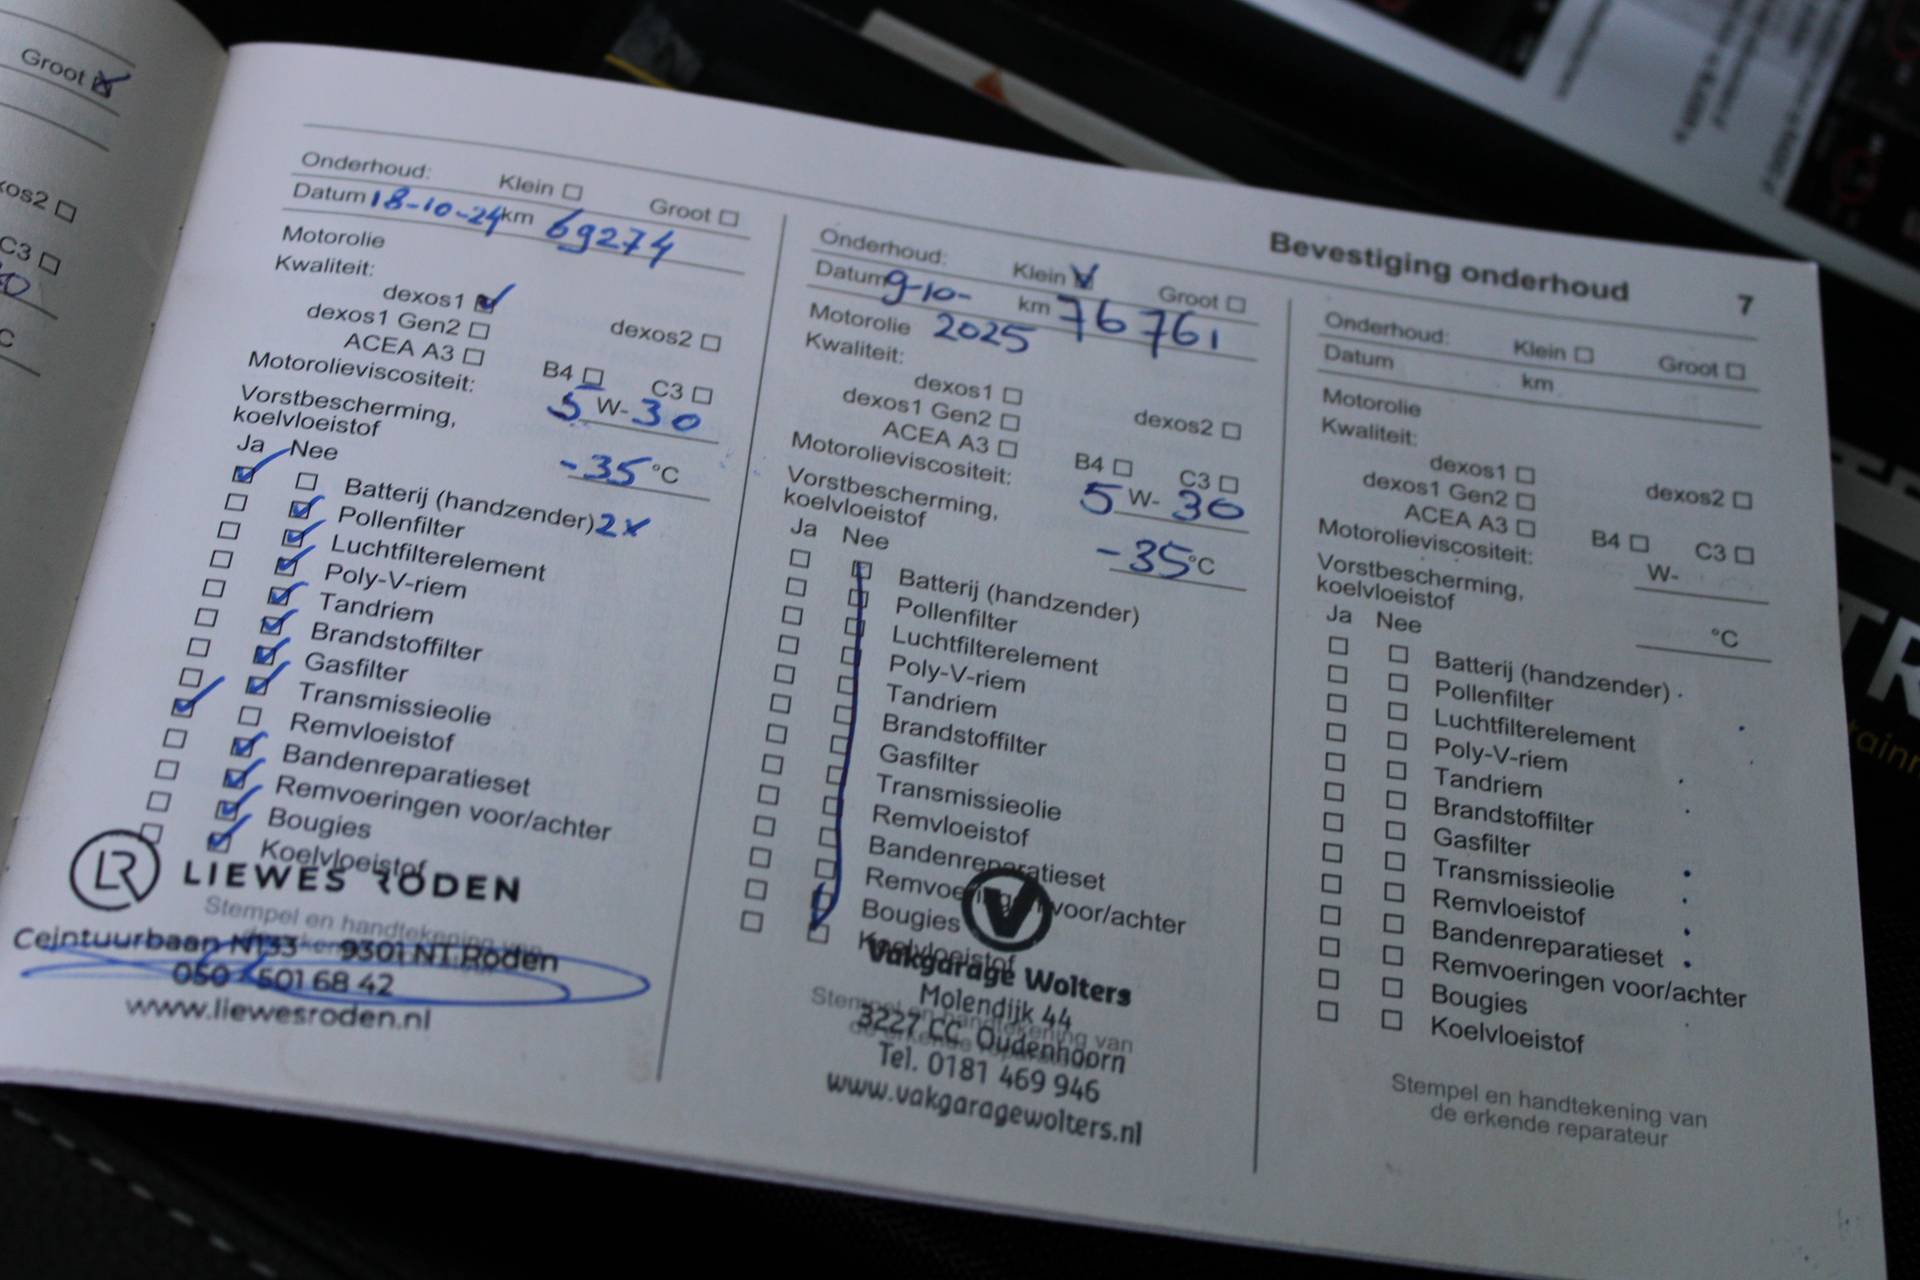 Groot
xos2
C3
Bevestiging onderhoud 7
Onderhoud: Klein Groot
Datum 18-10-24 km 69274
Motorolie
Kwaliteit:
dexos1
dexos1 Gen2 dexos2
ACEA A3 B4 C3
Motorolieviscositeit: 5 W- 30
Vorstbescherming,
koelvloeistof -35 °C
Ja Nee
Batterij (handzender) 2x
Pollenfilter
Luchtfilterelement
Poly-V-riem
Tandriem
Brandstoffilter
Gasfilter
Transmissieolie
Remvloeistof
Bandenreparatieset
Remvoeringen voor/achter
Bougies
Koelvloeistof
LR LIEWES RODEN
Stempel en handtekening van
Ceintuurbaan N133 9301 NT Roden
050 501 68 42
www.liewesroden.nl
Onderhoud: Klein Groot
Datum 9-10- km 76761
Motorolie 2025
Kwaliteit:
dexos1
dexos1 Gen2 dexos2
ACEA A3 B4 C3
Motorolieviscositeit: 5 W- 30
Vorstbescherming,
koelvloeistof -35 °C
Ja Nee
Batterij (handzender)
Pollenfilter
Luchtfilterelement
Poly-V-riem
Tandriem
Brandstoffilter
Gasfilter
Transmissieolie
Remvloeistof
Bandenreparatieset
Remvoeringen voor/achter
Bougies
Koelvloeistof
Vakgarage Wolters
Molendijk 44
Stempel en handtekening van
3227 CC Oudenhoorn
de erkende reparateur
Tel. 0181 469 946
www.vakgaragewolters.nl
Onderhoud: Klein Groot
Datum km
Motorolie
Kwaliteit:
dexos1
dexos1 Gen2 dexos2
ACEA A3 B4 C3
Motorolieviscositeit: W-
Vorstbescherming,
koelvloeistof °C
Ja Nee
Batterij (handzender)
Pollenfilter
Luchtfilterelement
Poly-V-riem
Tandriem
Brandstoffilter
Gasfilter
Transmissieolie
Remvloeistof
Bandenreparatieset
Remvoeringen voor/achter
Bougies
Koelvloeistof
Stempel en handtekening van
de erkende reparateur